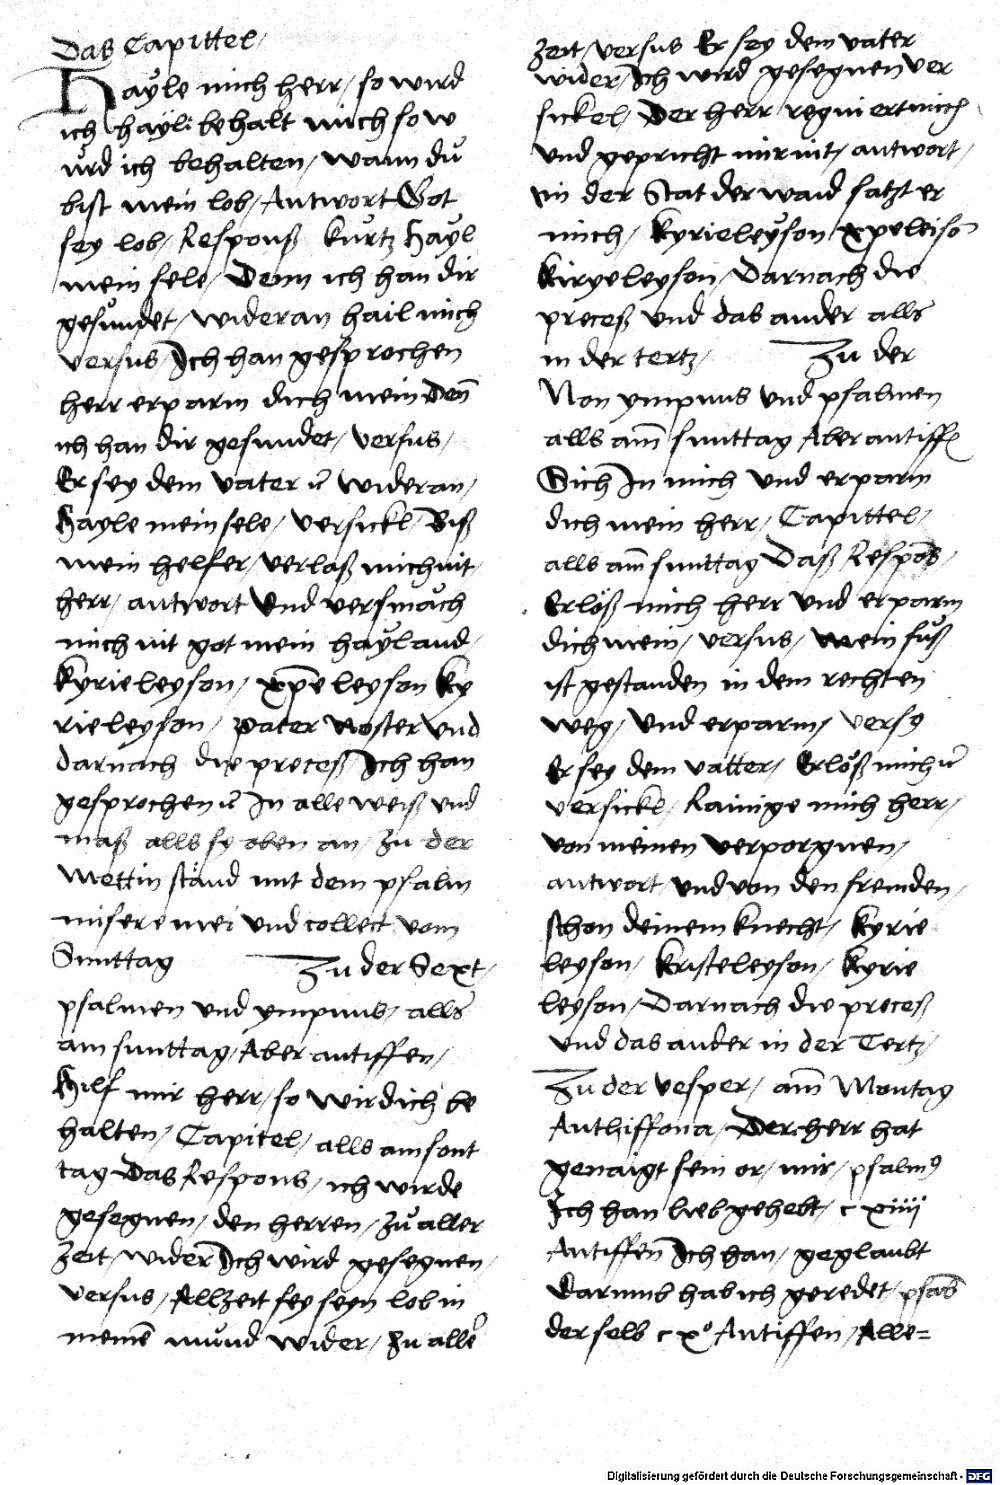 Das Capittel/
Hayle mich herr/ so wird
ich hayl: behalt mich so w
ürd ich behalten/ wann dů
bist mein lob/ Antwort Got
sey lob/ Respons kůrtz Hayl
mein sele/ Denn ich han dir
gesündet/ wideran hail mich
versus/ Ich han gesprochen
herr erparm dich mein Den̄
ich han dir gesundet/ versus/
Er sey dem vater wideran/
Hayle mein sele/ versickl/ Biß
mein helfer/ verlaß mich nit/
herr/ antwort Und versmäch
mich nit got mein hayland/
kyrieleyson/ xp̄e leyson ky
rieleyson/ pater noster Und
darnach die preceß Ich han
gesprochen In alle weiß und
maß alls sy oben an/ zu der
Mettin ständ mit dem psalm
misere mei Und collect vom
Sunttag Zu der Sext/
psalmen und ympnus/ alls
am sunttag/ Aber antiffen/
Hilf mir herr/ so wird ich be
halten/ Capitel/ alls am sont
tag Das Respons/ ich wirde
gesegnen/ den herren/ zů aller
Zeit/ wider Ich wird gesegnen/
Versus/ Allzeit sey seyn lob in
meinē mund wider/ Zu aller
zeit/ versus Er sey dem vater
wider/ Ich wird gesegnen ver
sickel/ Der herr regniert mich
und gepricht mir nit/ antwort/
in der Stat der waid satzt er
mich/ kyrieleyson xpeleisō
kiryeleyson/ Darnach die
preceß Und das ander alls
in der tertz/ Zu der
Non ympnus Und psalmen
alls am̄ sunttag Aber antiff
Sich In mich Und erparm
dich mein herr/ Capittel/
alls am̄ sunttag Daß Respōs/
Erlöß mich herr Und erparm
dich mein/ versus/ mein fůß
ist gestanden in dem rechten
weg/ Und erparm/ vers9
Er sey dem vatter/ Erlöß mich
versickl/ Rainige mich herr/
von meinen verporgnen/
antwort/ und von den fremden/
schon deinem knecht/ kyrie
leyson/ kristeleyson/ kyrie
leyson/ Darnach die preceß
Und das ander in der Tertz/
Zu der vesper/ am̄ Montag
Anthiffona/ Der herr hat
genaigt sein or/ mir/ psalm9
Ich han lieb gehebt/ c xiiii
Antiffen Ich han/ geglaubt
Darumb hab ich geredet/
der selb c xv Antiffen/ Alle=
Digitalisierung gefördert durch die Deutsche Forschungsgemeinschaft - DFG